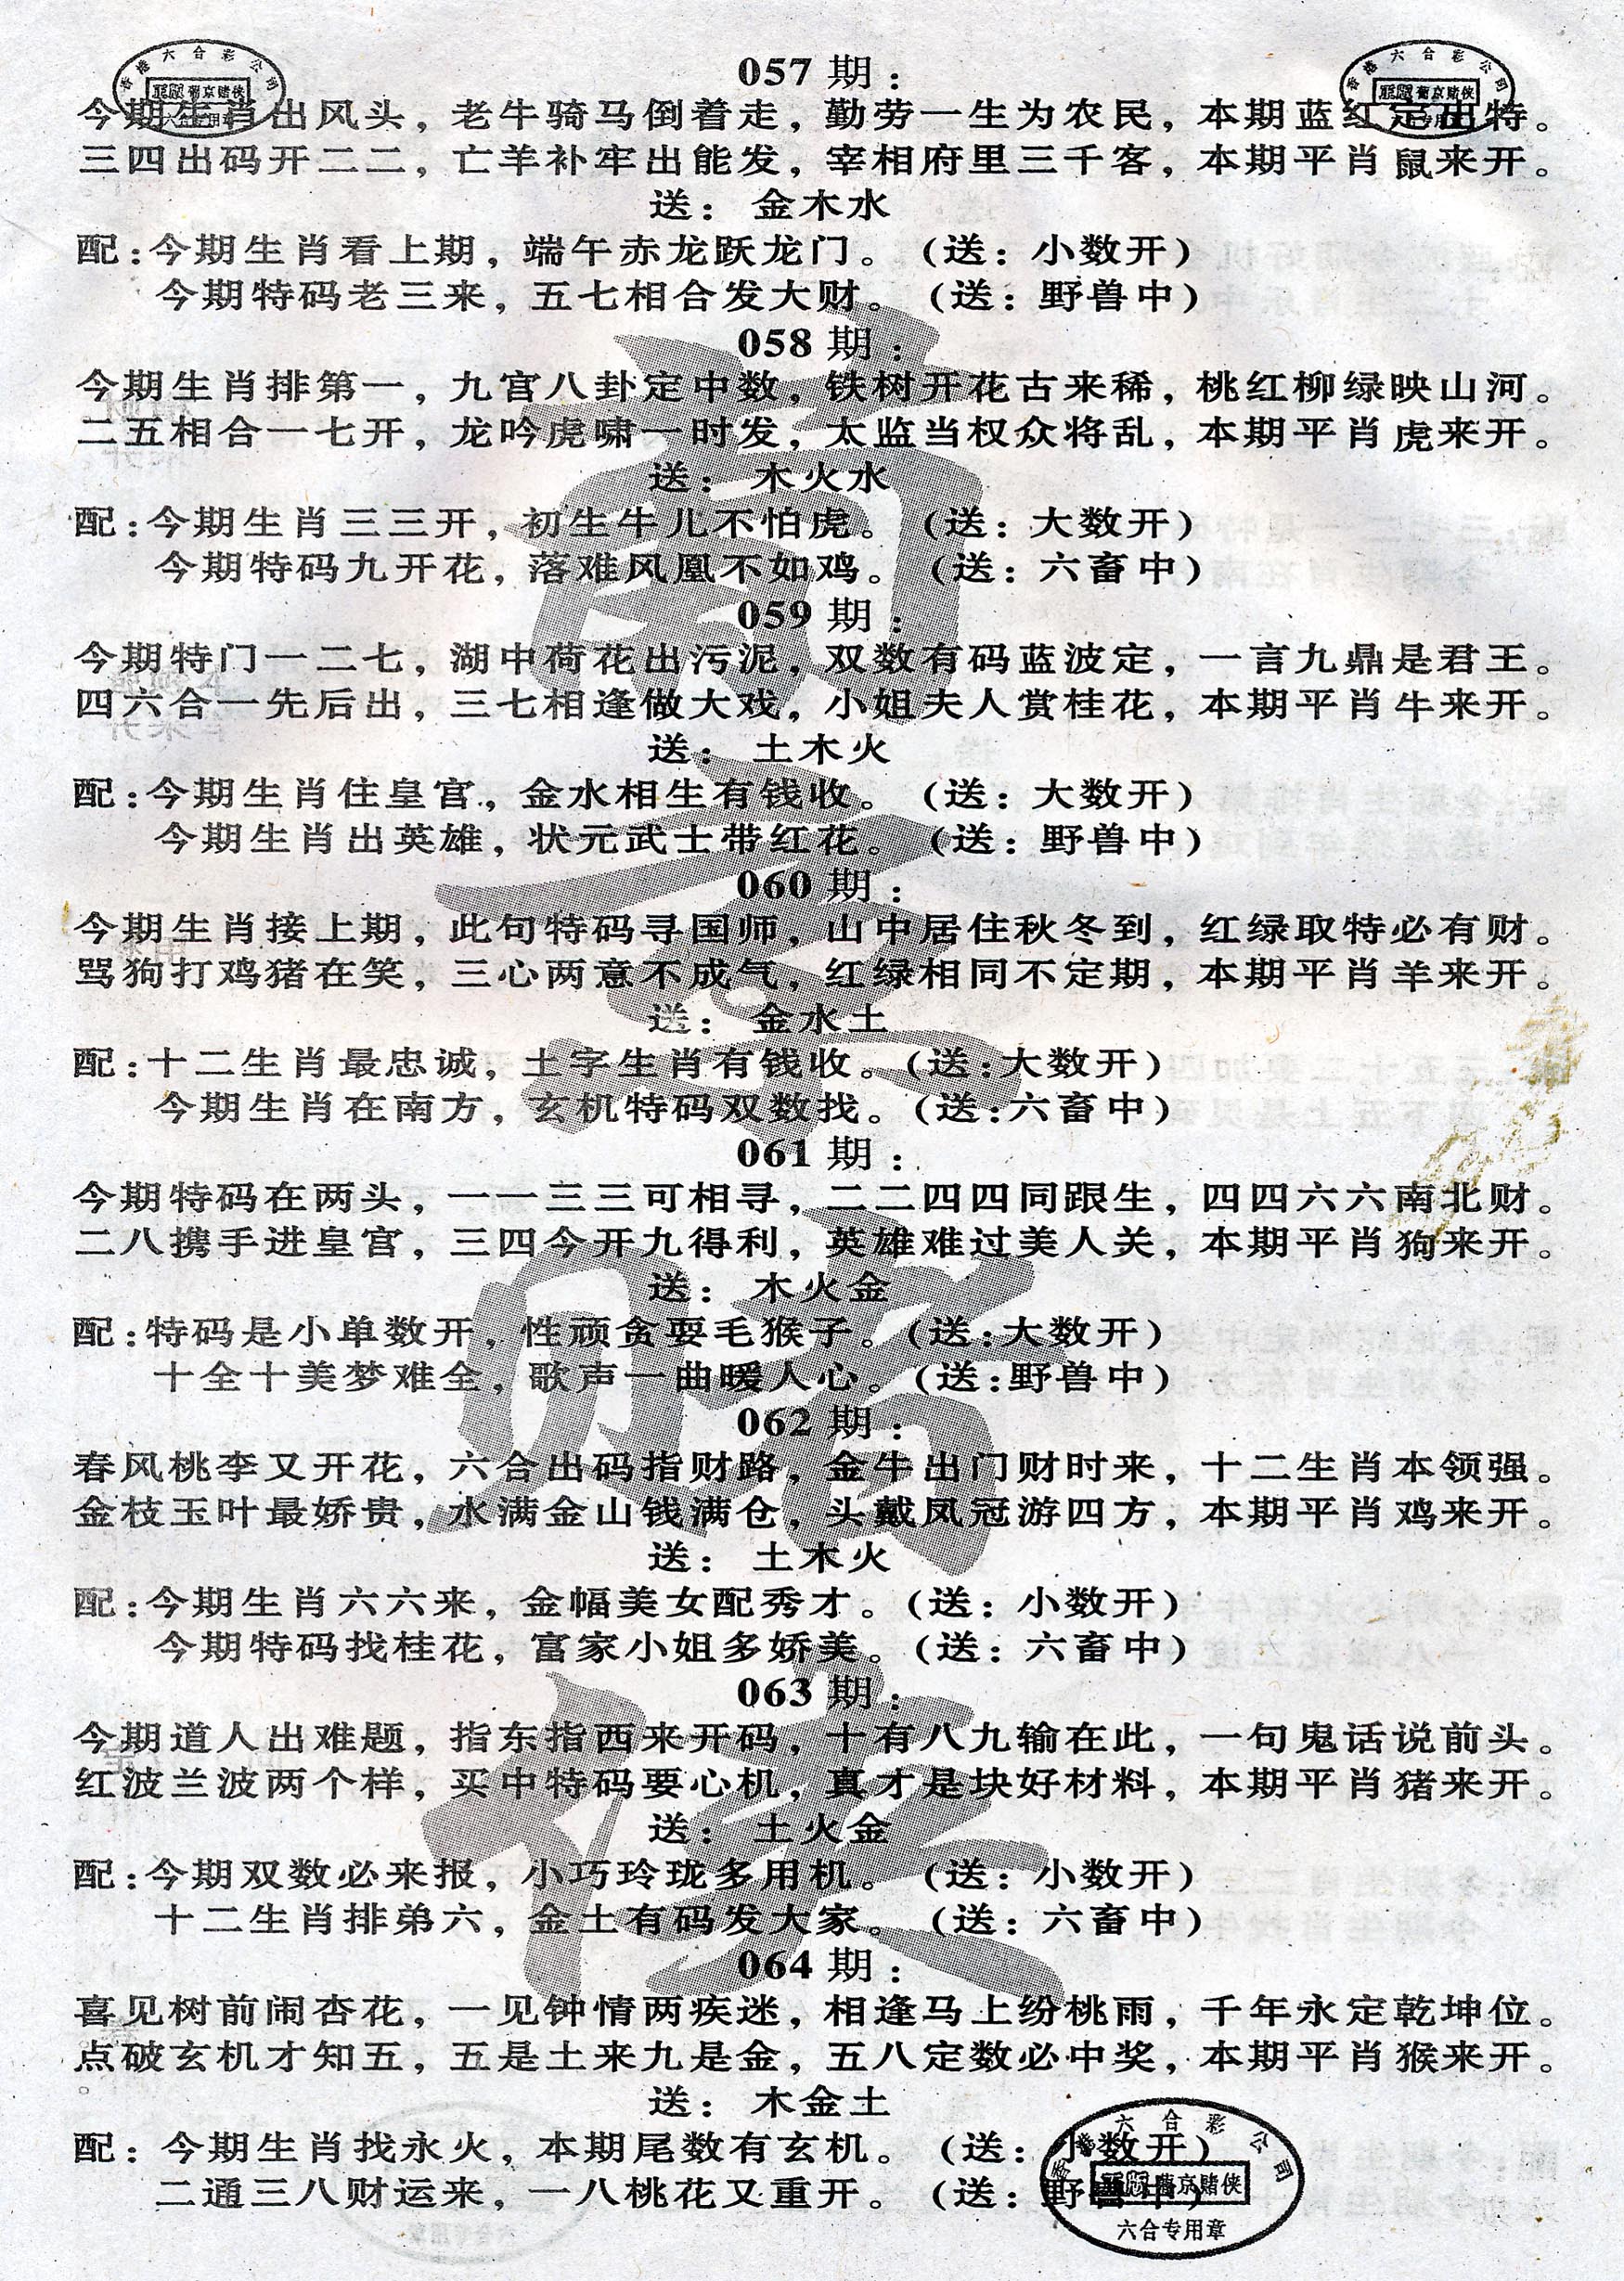 香港六合彩公司
葡京赌侠
六合专用章
香港六合彩公司
葡京赌侠
专用
057期：
今期生肖出风头，老牛骑马倒着走，勤劳一生为农民，本期蓝红定出特。
三四出码开二二，亡羊补牢出能发，宰相府里三千客，本期平肖鼠来开。
送：金木水
配：今期生肖看上期，端午赤龙跃龙门。（送：小数开）
今期特码老三来，五七相合发大财。（送：野兽中）
058期：
今期生肖排第一，九宫八卦定中数，铁树开花古来稀，桃红柳绿映山河。
二五相合一七开，龙吟虎啸一时发，太监当权众将乱，本期平肖虎来开。
送：木火水
配：今期生肖三三开，初生牛儿不怕虎。（送：大数开）
今期特码九开花，落难风凰不如鸡。（送：六畜中）
059期：
今期特门一二七，湖中荷花出污泥，双数有码蓝波定，一言九鼎是君王。
四六合一先后出，三七相逢做大戏，小姐夫人赏桂花，本期平肖牛来开。
送：土木火
配：今期生肖住皇宫，金水相生有钱收。（送：大数开）
今期生肖出英雄，状元武士带红花。（送：野兽中）
060期：
今期生肖接上期，此句特码寻国师，山中居住秋冬到，红绿取特必有财。
骂狗打鸡猪在笑，三心两意不成气，红绿相同不定期，本期平肖羊来开。
送：金水土
配：十二生肖最忠诚，土字生肖有钱收。（送：大数开）
今期生肖在南方，玄机特码双数找。（送：六畜中）
061期：
今期特码在两头，一一三三可相寻，二二四四同跟生，四四六六南北财。
二八携手进皇宫，三四今开九得利，英雄难过美人关，本期平肖狗来开。
送：木火金
配：特码是小单数开，性顽贪耍毛猴子。（送：大数开）
十全十美梦难全，歌声一曲暖人心。（送：野兽中）
062期：
春风桃李又开花，六合出码指财路，金牛出门财时来，十二生肖本领强。
金枝玉叶最娇贵，水满金山钱满仓，头戴凤冠游四方，本期平肖鸡来开。
送：土木火
配：今期生肖六六来，金幅美女配秀才。（送：小数开）
今期特码找桂花，富家小姐多娇美。（送：六畜中）
063期：
今期道人出难题，指东指西来开码，十有八九输在此，一句鬼话说前头。
红波兰波两个样，买中特码要心机，真才是块好材料，本期平肖猪来开。
送：土火金
配：今期双数必来报，小巧玲珑多用机。（送：小数开）
十二生肖排弟六，金土有码发大家。（送：六畜中）
064期：
喜见树前闹杏花，一见钟情两疾迷，相逢马上纷桃雨，千年永定乾坤位。
点破玄机才知五，五是土来九是金，五八定数必中奖，本期平肖猴来开。
送：木金土
配：今期生肖找永火，本期尾数有玄机。（送：小数开）
二通三八财运来，一八桃花又重开。（送：野兽中）
香港六合彩公司
葡京赌侠
六合专用章